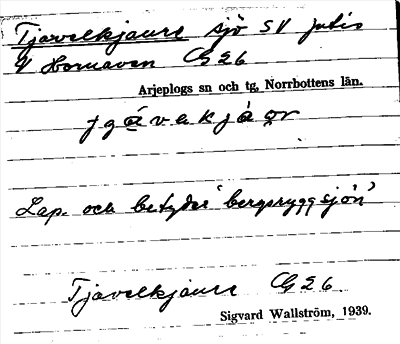 Tjavelkjaure sjö SV Jutis
V Hornavan G26
Arjeplogs sn och tg, Norrbottens län.
Lap. och betyder 'bergsryggsjön'
Tjavelkjaure G26
Sigvard Wallström, 1939.